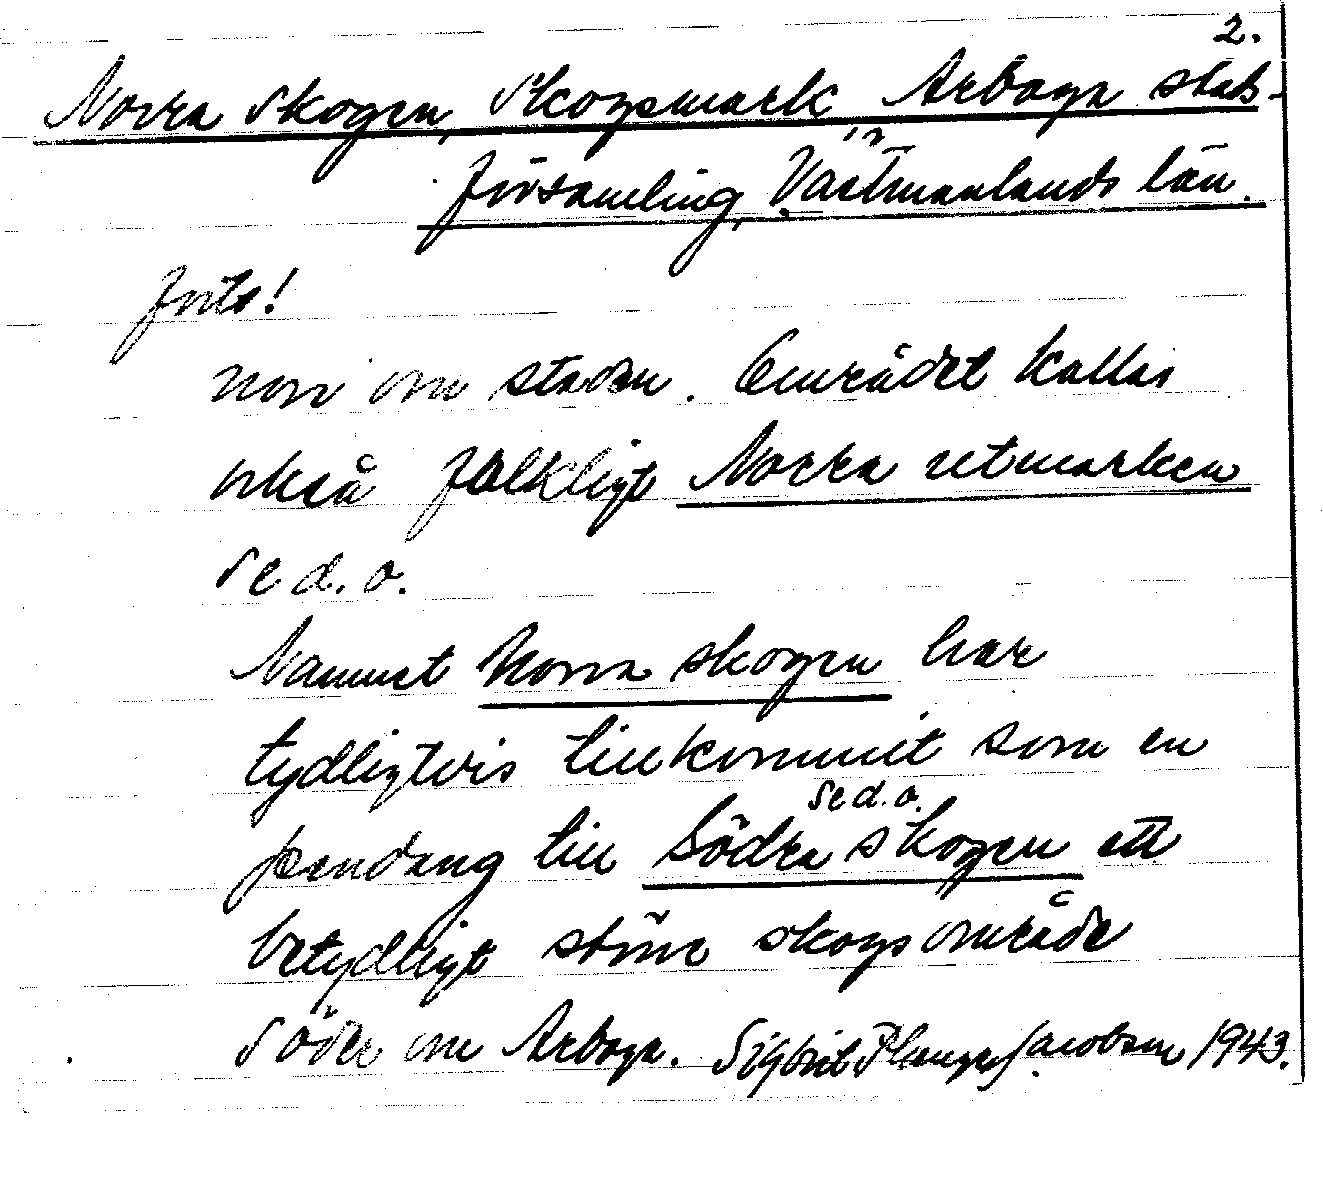 2.
Norra Skogen, Skogsmark i Arboga stads-
församling, Västmanlands län.
forts!
norr om staden. Området kallas
också folkligt Norra utmarken
se d. o.
Namnet Norra skogen har
tydligtvis tillkommit som en
pendang till Södra skogen ett
se d. o.
betydligt större skogsområde
söder om Arboga. Sigbrit Plænge Jacobson 1943.